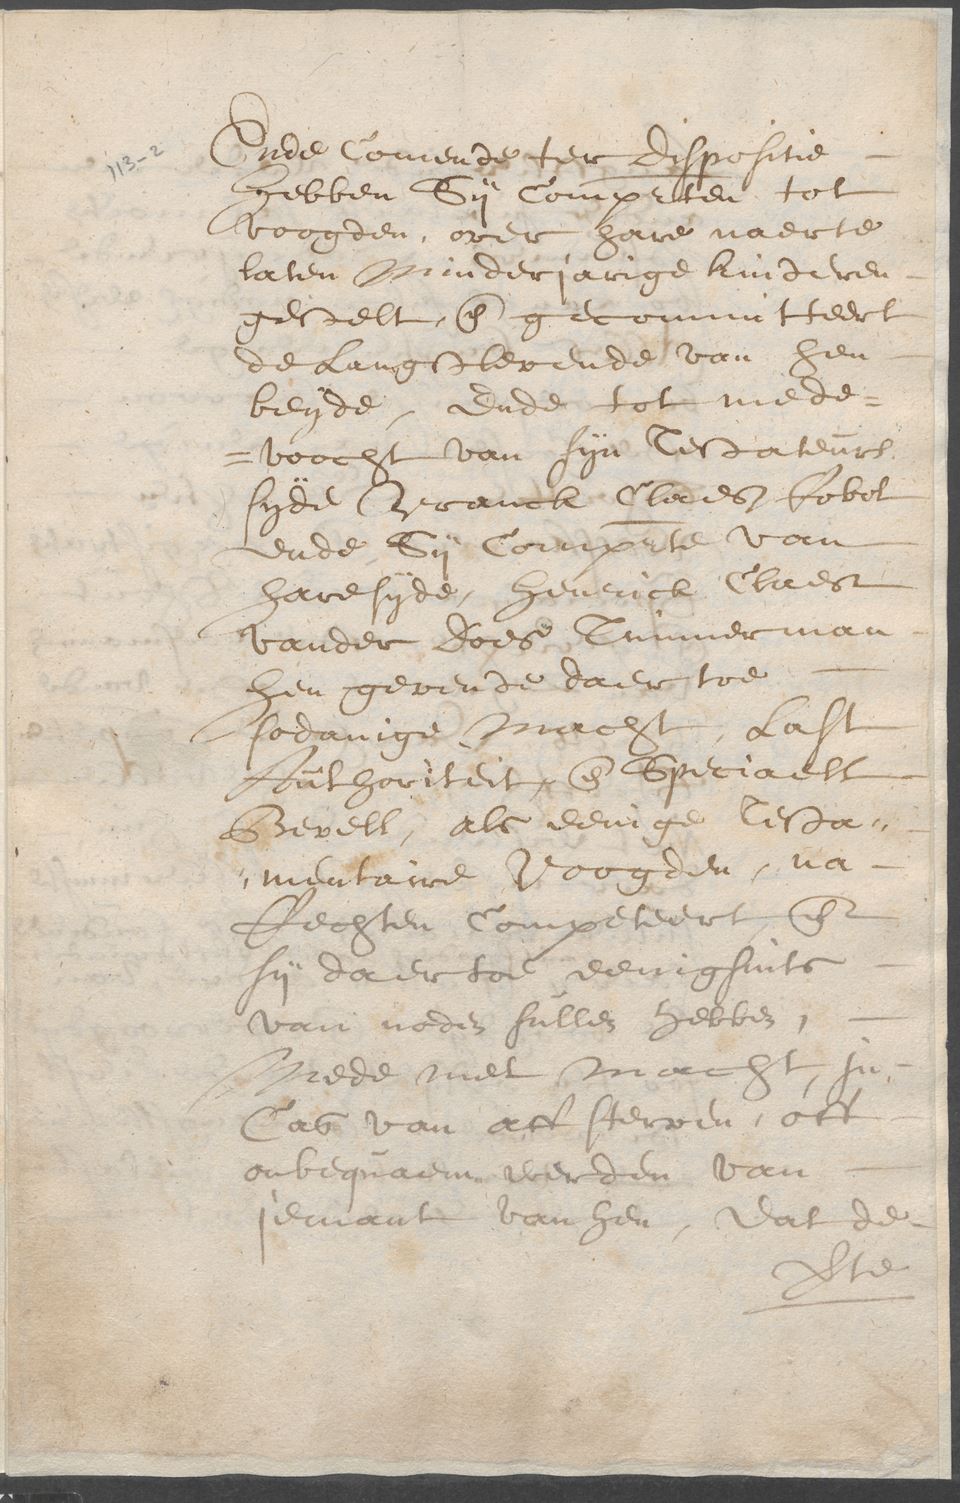 113-2
Ende Comende ter dispositie —
hebben Sij Comprten tot
voogden, over hare naerte
laten Minderjarige kinderen —
gestelt, en gecommitteert
de Langstlevende van hen —
beijde, ende tot mede=
=voocht van sijn Testateurs
sijde Vranck Claesz
ende Sij Comprte van
hare sijde, Henrick Claesz
vander Does Timmerman —
hen gevende daer toe —
sodanige Macht, Last
Authoriteit, en Speciaell —
Bevell, als eenige Testa„ —
„mentaire Voogden, na —
Rechten Competeert en
sij daer toe eenigsints —
van noden sullen hebben, —
Mede met Macht, in —
Cas van aff sterven, off —
onbequaem werden van —
jemant van hen, dat de —
Rste